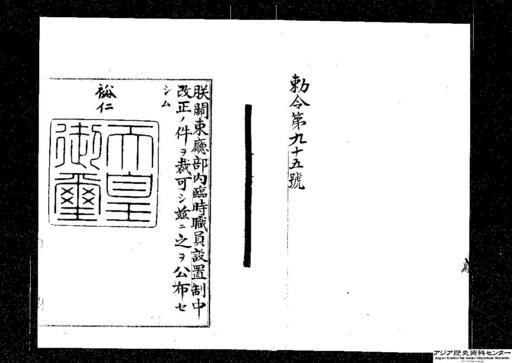 勅令第九十五號
朕關東廳部内臨時職員設置制中
改正ノ件ヲ裁可シ茲ニ之ヲ公布セ
シム
裕仁
天皇
御璽
アジア歴史資料センター
Japan Center for Asian Historical Records